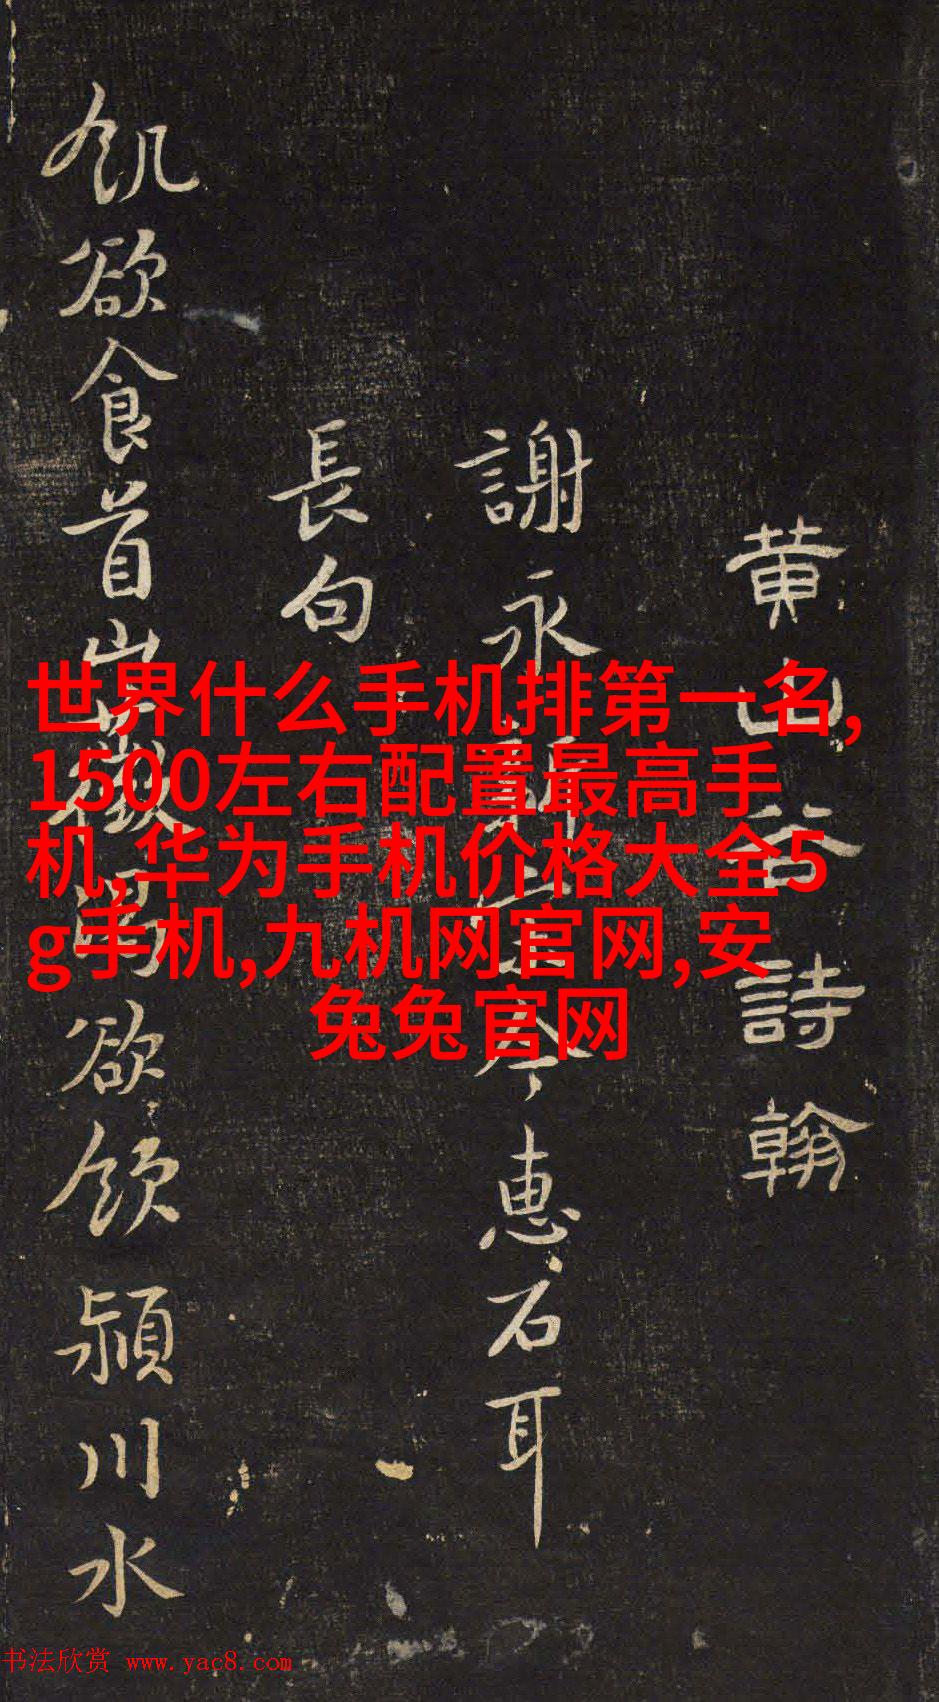 黄山谷詩翰
謝永新令惠石耳
長句
飢欲食首山薇渴欲飲潁川水
世界什么手机排第一名,
1500左右配置最高手
机,华为手机价格大全5
g手机,九机网官网,安
兔兔官网
书法欣赏 www.yac8.com